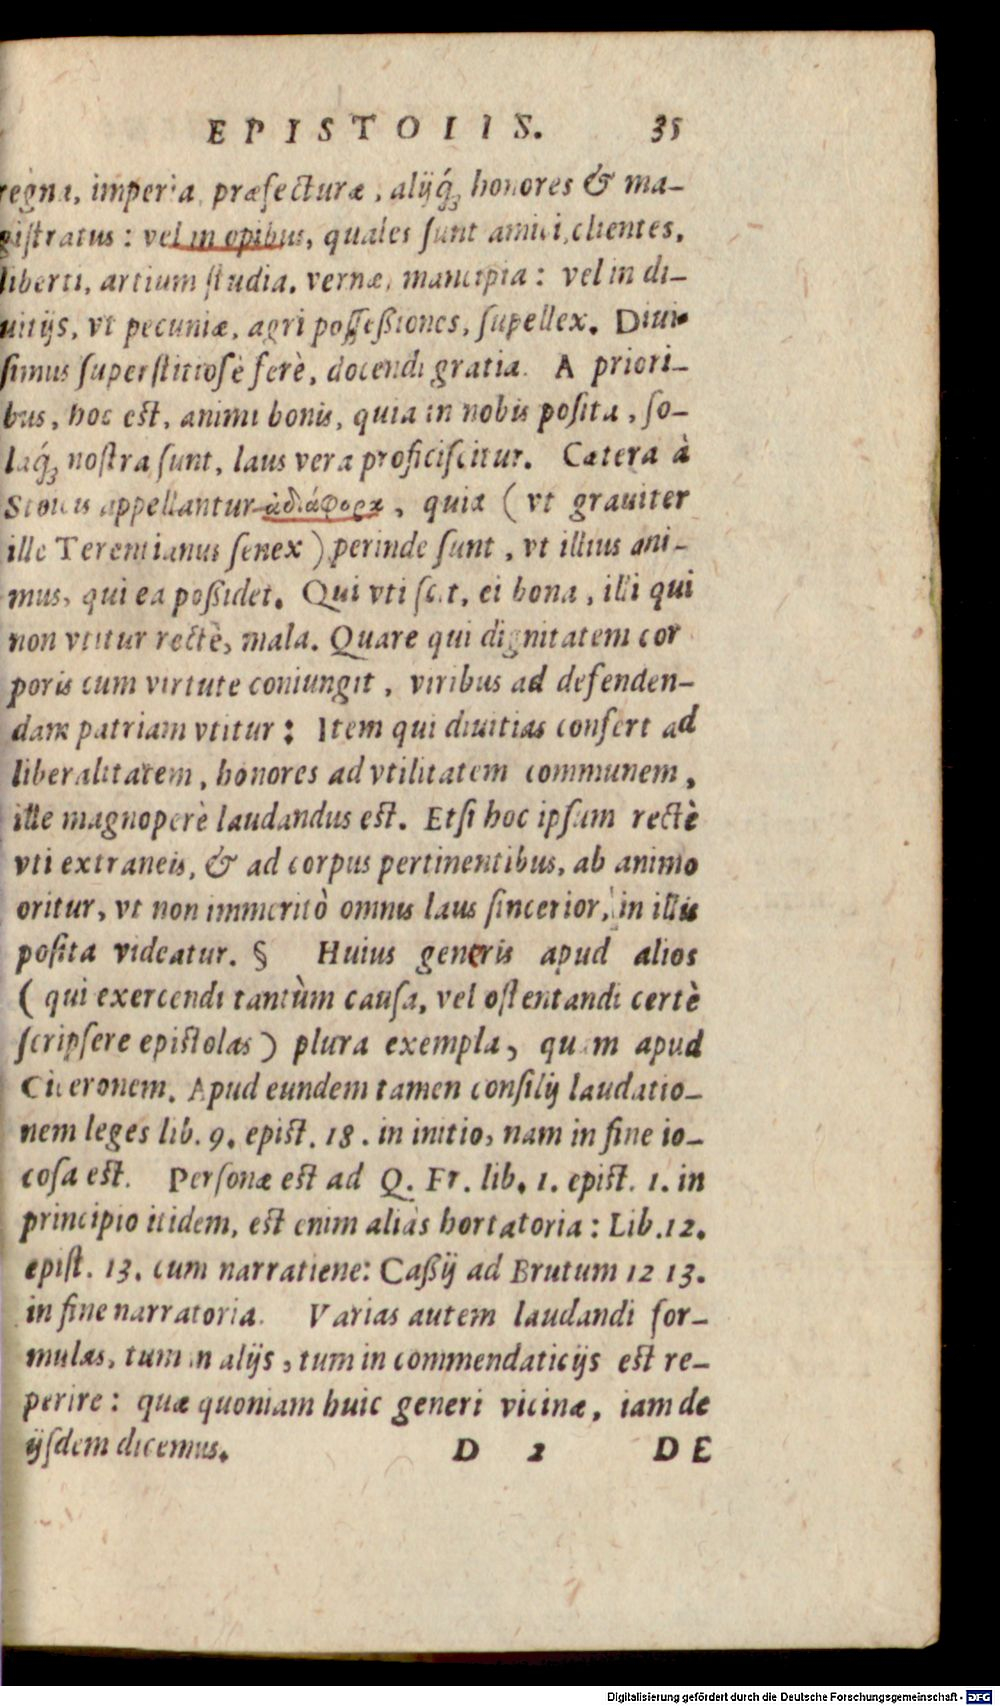 EPISTOLIS. 35
regna, imperia, præfecturæ, alijq́; honores & ma-
giſtratus: vel in opibus, quales ſunt amici, clientes,
liberti, artium ſtudia, vernæ, mancipia: vel in di-
uitijs, vt pecuniæ, agri poſſeßiones, ſupellex. Diui-
ſimus ſuperſtitioſè ferè, docendi gratia. A priori-
bus, hoc eſt, animi bonis, quia in nobis poſita, ſo-
laq́; noſtra ſunt, laus vera proficiſcitur. Cætera à
Stoicis appellantur ἀδιάφορα, quia (vt grauiter
ille Terentianus ſenex) perinde ſunt, vt illius ani-
mus, qui ea poßidet. Qui vti ſcit, ei bona, illi qui
non vtitur rectè, mala. Quare qui dignitatem cor
poris cum virtute coniungit, viribus ad defenden-
dam patriam vtitur: Item qui diuitias confert ad
liberalitatem, honores ad vtilitatem communem,
ille magnoperè laudandus eſt. Etſi hoc ipſum rectè
vti extraneis, & ad corpus pertinentibus, ab animo
oritur, vt non immeritò omnis laus ſincerior, in illis
poſita videatur. § Huius generis apud alios
(qui exercendi tantùm cauſa, vel oſtentandi certè
ſcripſere epiſtolas) plura exempla, quàm apud
Ciceronem. Apud eundem tamen conſilij laudatio-
nem leges lib. 9. epiſt. 18. in initio, nam in fine io-
coſa eſt. Perſonæ eſt ad Q. Fr. lib. 1. epiſt. 1. in
principio itidem, eſt enim aliàs hortatoria: Lib. 12.
epiſt. 13. cum narratiene: Caßij ad Brutum 12 13.
in fine narratoria. Varias autem laudandi for-
mulas, tum in alijs, tum in commendaticijs eſt re-
perire: quæ quoniam huic generi vicinæ, iam de
ijſdem dicemus. D 2 DE
Digitalisierung gefördert durch die Deutsche Forschungsgemeinschaft - DFG